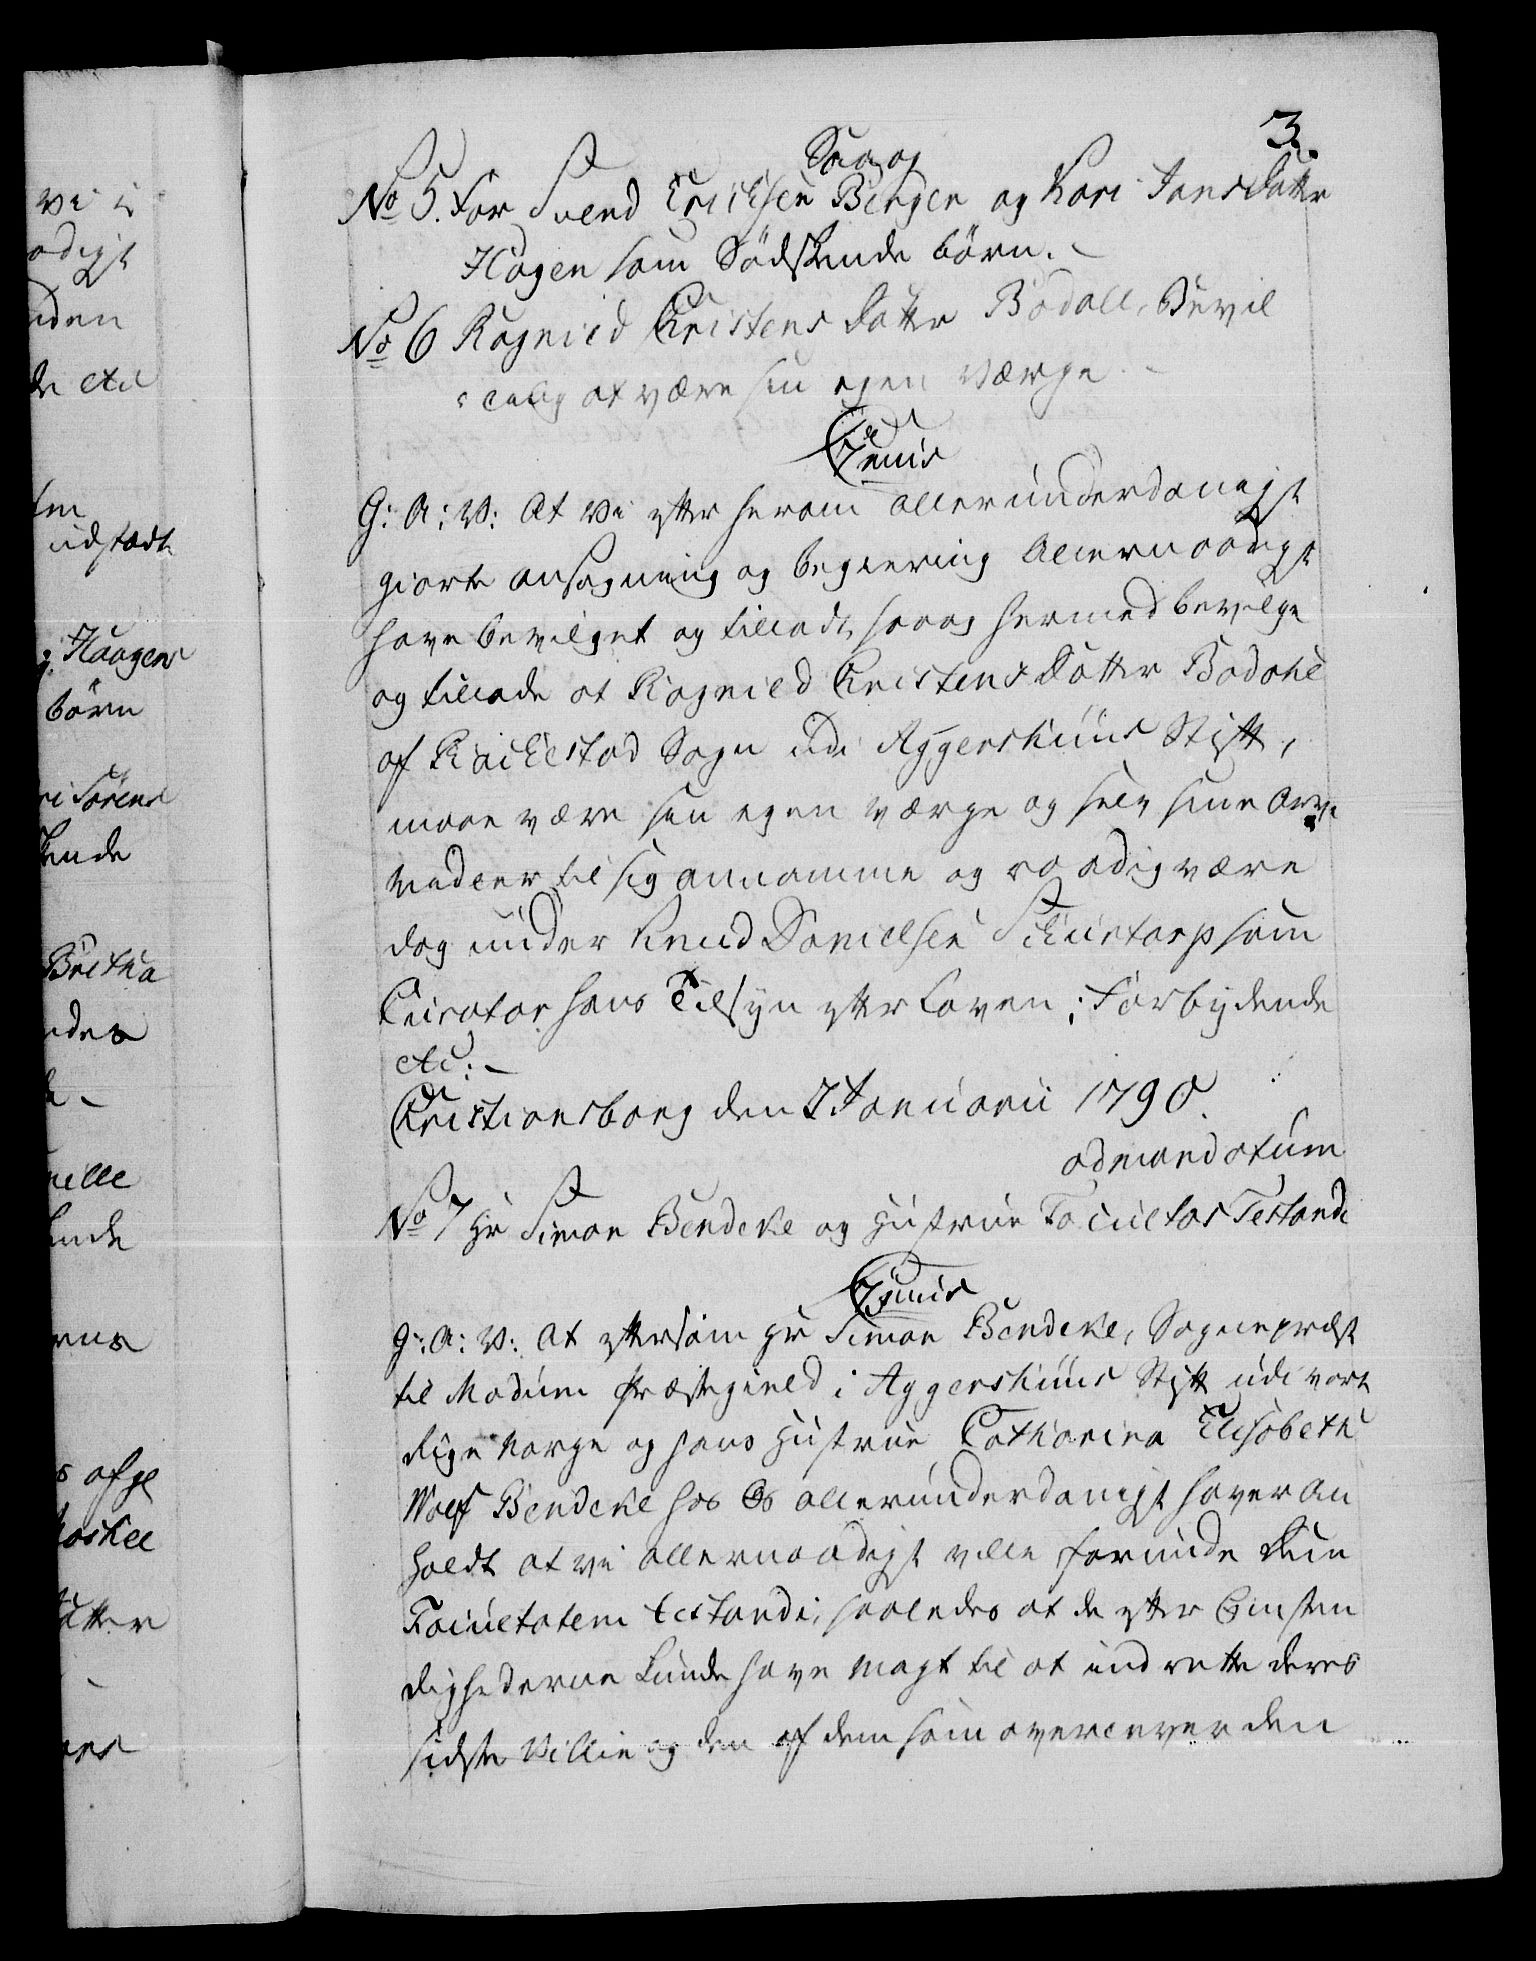 3.
Saa og
No 5. For Svend Erichsen Bergen og Kari Jansdatter
Hagen som Södskende börn. -
No 6 Ragnild Christens datter Bødahl, Bevil
ling at være sin egen Værge. -
C 7mus
G: A: V: At Vi efter herom allerunderdanigst
giorte ansøgning og begiering Allernaadigst
have bevilget og tilladt, saa og hermed bevilge
og tillade at Ragnild Christens Datter Bødahl
af Rackestad Sogn udi Aggershuus Stift,
maae være sin egen værge og selv sine Arve
Medler til sig annamme og raadig være
dog under Knud Danielsen Skiertorp som
Curator hans Tilsyn efter Loven; Forbydende
etc: -
Christiansborg den 7 Januarii 1790.
ad mandatum
No 7 Hr Simon Bendeke og Hustrue Facultas Testandi
C 7mus
G: A: V: At eftersom Hr Simon Bendeke, Sogneprest
til Modum Præstegield i Aggershuus Stift udi vort
Rige Norge og hans Hustrue Catharina Elisabeth
Wolf Bendeke hos Os allerunderdanigst haver an
holdt at vi allernaadigst ville forunde dem
Facultatem testandi, saaledes at de efter Omsten
dighederne kunde have Magt til at indrette deres
sidste Villie og den af dem som overlever den
vi i
aadigst
nden
de etc
udstædt
g. Haagens
börn
ri Sörens
kende
Britha
ndes
de -
nille
ende
rns
s afg
Maskel
datter
-